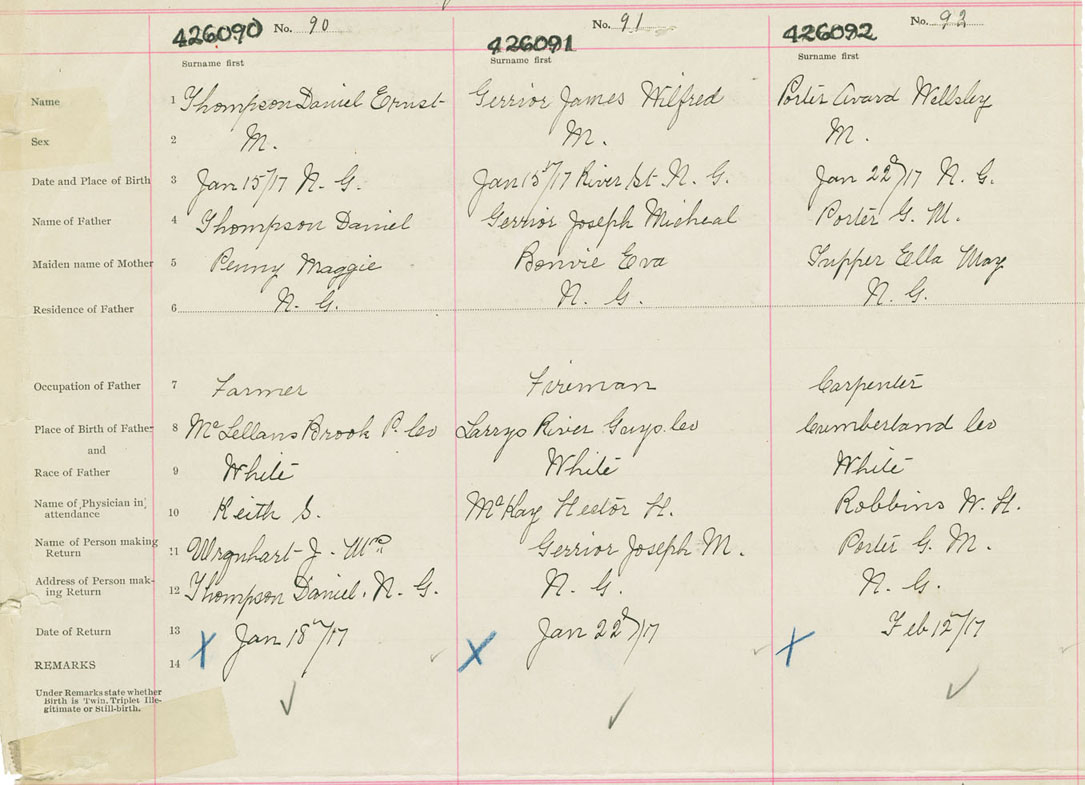 426090 No. 90 426091 No. 91 426092 No. 92
Surname first Surname first Surname first
Name 1 Thompson Daniel Ernst Gerrior James Wilfred Porter Avard Wellsley
Sex 2 M. M. M.
Date and Place of Birth 3 Jan 15/17 N. G. Jan 15th/17 River St. N. G. Jan 22d/17 N. G.
Name of Father 4 Thompson Daniel Gerrior Joseph Micheal Porter G. M.
Maiden name of Mother 5 Penny Maggie Bonvie Eva Tupper Ella May
Residence of Father 6 N. G. N. G. N. G.
Occupation of Father 7 Farmer Fireman Carpenter
Place of Birth of Father 8 McLellans Brook P. Co Larrys River Guys. Co Cumberland Co
and
Race of Father 9 White White White
Name of Physician in
attendance 10 Keith S. McKay Hector H. Robbins W. H.
Name of Person making
Return 11 Urquhart J. Gerrior Joseph M. Porter G. M.
Address of Person mak-
ing Return 12 Thompson Daniel. N. G. N. G. N. G.
Date of Return 13 X Jan 18th/17 X Jan 22d/17 X Feb 12th/17
REMARKS 14
Under Remarks state whether
Birth is Twin, Triplet Ille-
gitimate or Still-birth.